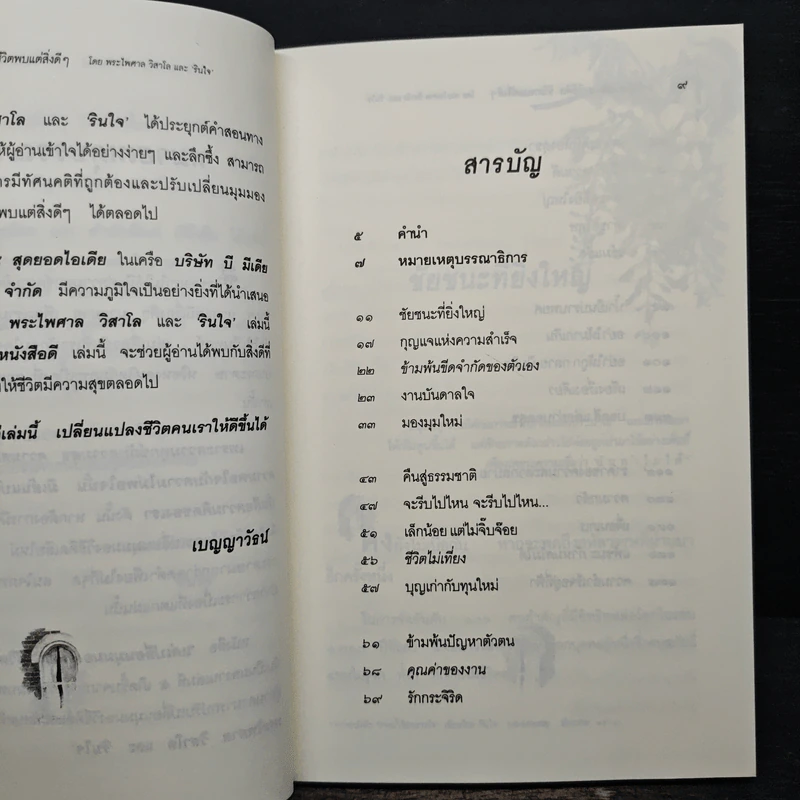 ชีวิตพบแต่สิ่งดีๆ โดย พระไพศาล วิสาโล และ 'รินใจ'
สาโล และ 'รินใจ' ได้ประยุกต์คำสอนทาง
ให้ผู้อ่านเข้าใจได้อย่างง่ายๆ และลึกซึ้ง สามารถ
การมีทัศนคติที่ถูกต้องและปรับเปลี่ยนมุมมอง
พบแต่สิ่งดีๆ ได้ตลอดไป
สุดยอดไอเดีย ในเครือ บริษัท บี มีเดีย
จำกัด มีความภูมิใจเป็นอย่างยิ่งที่ได้นำเสนอ
พระไพศาล วิสาโล และ 'รินใจ' เล่มนี้
หนังสือดี เล่มนี้ จะช่วยผู้อ่านได้พบกับสิ่งดีที่
ให้ชีวิตมีความสุขตลอดไป
เล่มนี้ เปลี่ยนแปลงชีวิตคนเราให้ดีขึ้นได้
เบญญาวัธน์
๙
สารบัญ
๕ คำนำ
๗ หมายเหตุบรรณาธิการ
๑๑ ชัยชนะที่ยิ่งใหญ่
๑๗ กุญแจแห่งความสำเร็จ
๒๒ ข้ามพ้นขีดจำกัดของตัวเอง
๒๓ งานบันดาลใจ
๓๓ มองมุมใหม่
๔๓ คืนสู่ธรรมชาติ
๔๗ จะรีบไปไหน จะรีบไปไหน...
๕๑ เล็กน้อย แต่ไม่จิ๊บจ๊อย
๕๖ ชีวิตไม่เที่ยง
๕๗ บุญเก่ากับทุนใหม่
๖๑ ข้ามพ้นปัญหาตัวตน
๖๘ คุณค่าของงาน
๖๙ รักกระจิริด